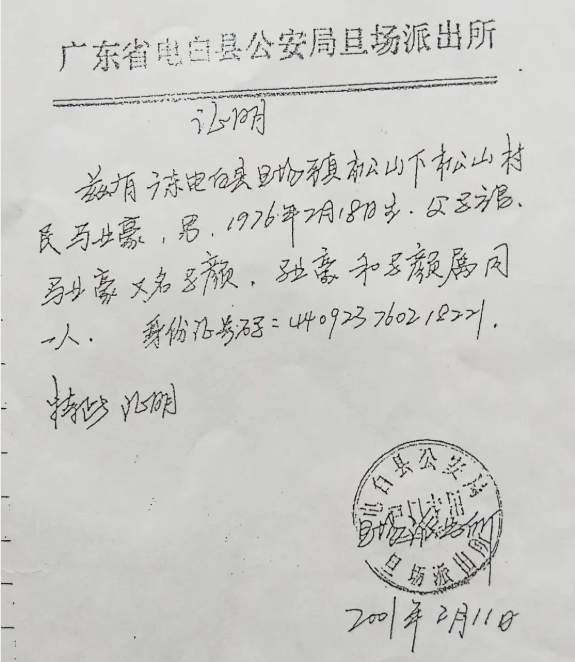 广东省电白县公安局旦场派出所
证明
兹有广东电白县旦场镇松山下松山村
民马业豪，男，1976年2月18日生．父
马业豪又名子颜，业豪和子颜属同
一人． 身份证号码=440923760218221．
特此证明
电白县公安局
旦场派出所
2001年2月11日